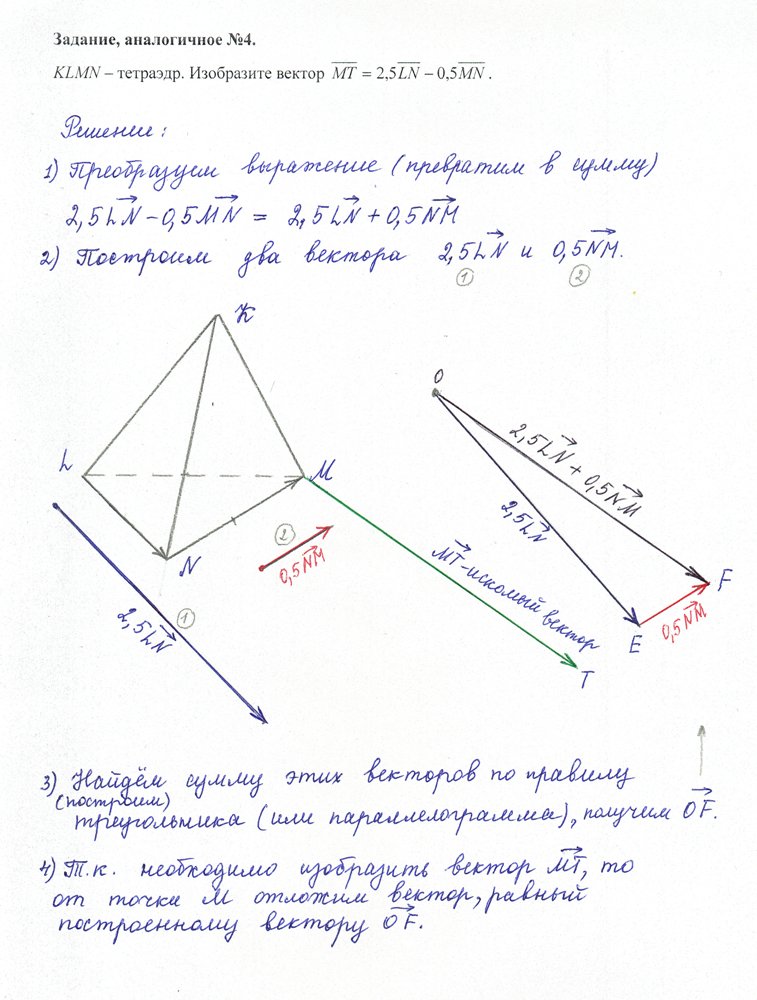 Задание, аналогичное №4.
KLMN – тетраэдр. Изобразите вектор MT = 2,5LN – 0,5MN .
Решение:
1) Преобразуем выражение (превратим в сумму)
2,5LN – 0,5MN = 2,5LN + 0,5NM
2) Построим два вектора 2,5LN и 0,5NM.
1 2
K
L
M
N
2
0,5NM
1
2,5LN
MT - искомый вектор
T
O
2,5LN + 0,5NM
2,5LN
F
E
0,5NM
3) Найдём сумму этих векторов по правилу
(построим)
треугольника (или параллелограмма), получим OF.
4) Т.к. необходимо изобразить вектор MT, то
от точки M отложим вектор, равный
построенному вектору OF.